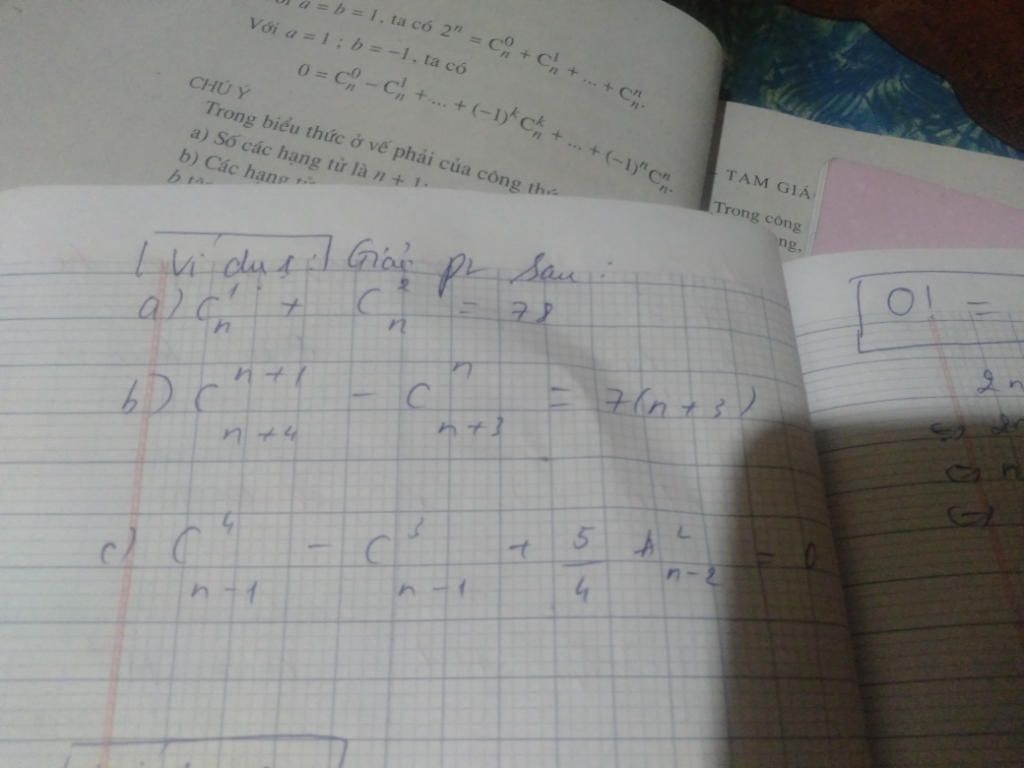 a = b = 1, ta có 2ⁿ = C⁰ₙ + C¹ₙ + ... + Cⁿₙ.
Với a = 1 ; b = −1, ta có
0 = C⁰ₙ − C¹ₙ + ... + (−1)ᵏCᵏₙ + ... + (−1)ⁿCⁿₙ.
CHÚ Ý
Trong biểu thức ở vế phải của công
a) Số các hạng tử là n + 1;
b) Các hạng
TAM GIÁ
Trong công
Ví dụ 1: Giải pt sau :
a) C¹ₙ + C²ₙ = 78
b) Cⁿ⁺¹ₙ₊₄ − Cⁿₙ₊₃ = 7(n + 3)
c) C⁴ₙ₋₁ − C³ₙ₋₁ + 5/4 A²ₙ₋₂ = 0
0! =
2n